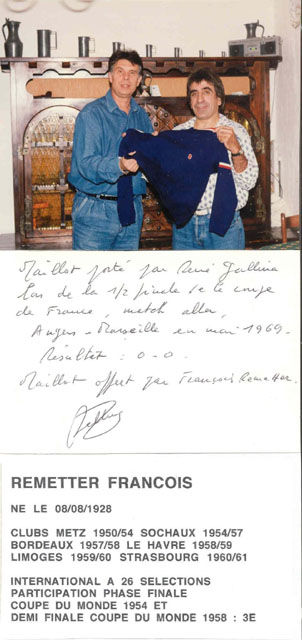 Maillot porté par René Gallina
lors de la 1/2 finale de la coupe
de France, match aller,
Angers - Marseille en mai 1969.
Résultat : 0-0.
Maillot offert par François Remetter.
REMETTER FRANCOIS
NE LE 08/08/1928
CLUBS METZ 1950/54 SOCHAUX 1954/57
BORDEAUX 1957/58 LE HAVRE 1958/59
LIMOGES 1959/60 STRASBOURG 1960/61
INTERNATIONAL A 26 SELECTIONS
PARTICIPATION PHASE FINALE
COUPE DU MONDE 1954 ET
DEMI FINALE COUPE DU MONDE 1958 : 3E